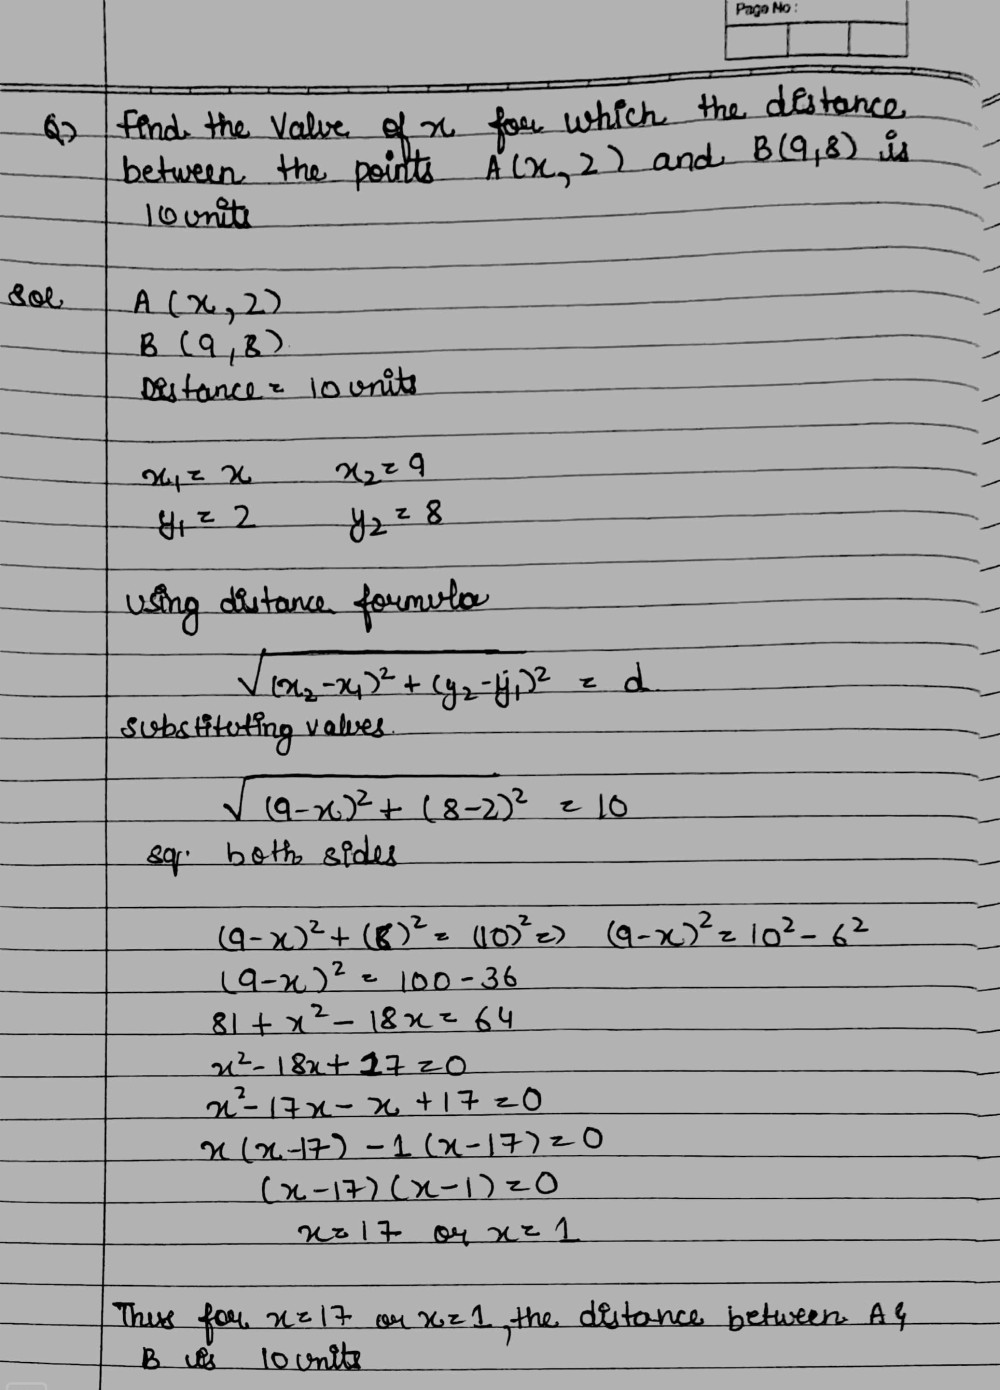 Page No :
Q) find the value of x for which the distance
between the points A(x, 2) and B(9,8) is
10 units
Sol A (x, 2)
B (9, 8)
Distance = 10 units
x₁ = x x₂ = 9
y₁ = 2 y₂ = 8
using distance formula
√(x₂-x₁)² + (y₂-y₁)² = d
substituting values.
√(9-x)² + (8-2)² = 10
sq. both sides
(9-x)² + (6)² = (10)² => (9-x)² = 10² - 6²
(9-x)² = 100 - 36
81 + x² - 18x = 64
x² - 18x + 17 = 0
x² - 17x - x + 17 = 0
x (x-17) - 1 (x-17) = 0
(x-17) (x-1) = 0
x = 17 or x = 1
Thus for x = 17 or x = 1, the distance between A &
B is 10 units